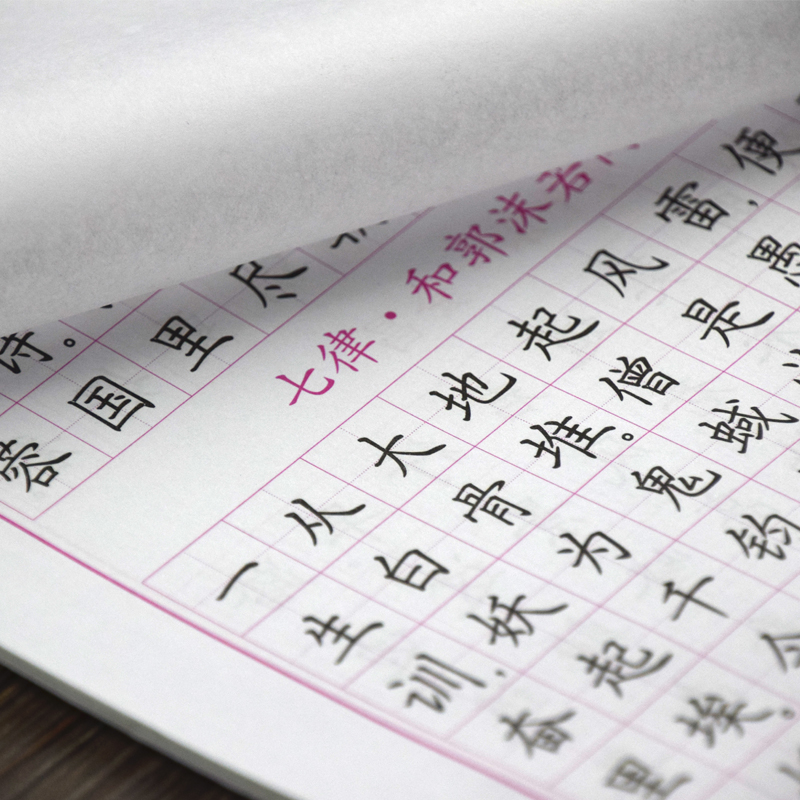 诗。
蓉国里尽
七律·和郭沫若
一从大地起风雷,便
生白骨堆。僧是愚
训,妖为鬼蜮
奋起千钧
里埃。今